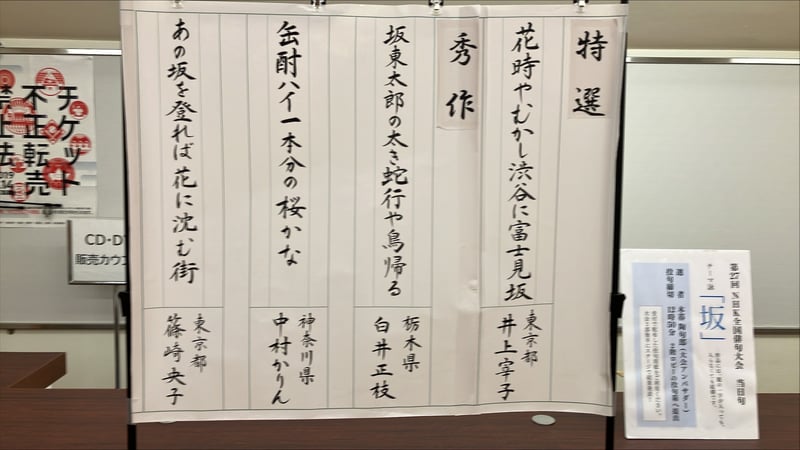 特選
花時やむかし渋谷に富士見坂
東京都
井上宰子
秀作
坂東太郎の太き蛇行や鳥帰る
栃木県
白井正枝
缶酎ハイ一本分の桜かな
神奈川県
中村かりん
あの坂を登れば花に沈む街
東京都
篠崎央子
第27回 NHK全国俳句大会 当日句
テーマ詠
「坂」
選者
投句締切 12時50分
チケット
不正転売
禁止法
CD・D
販売カウ